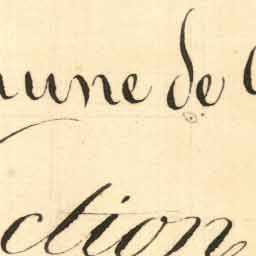 mune de
ction